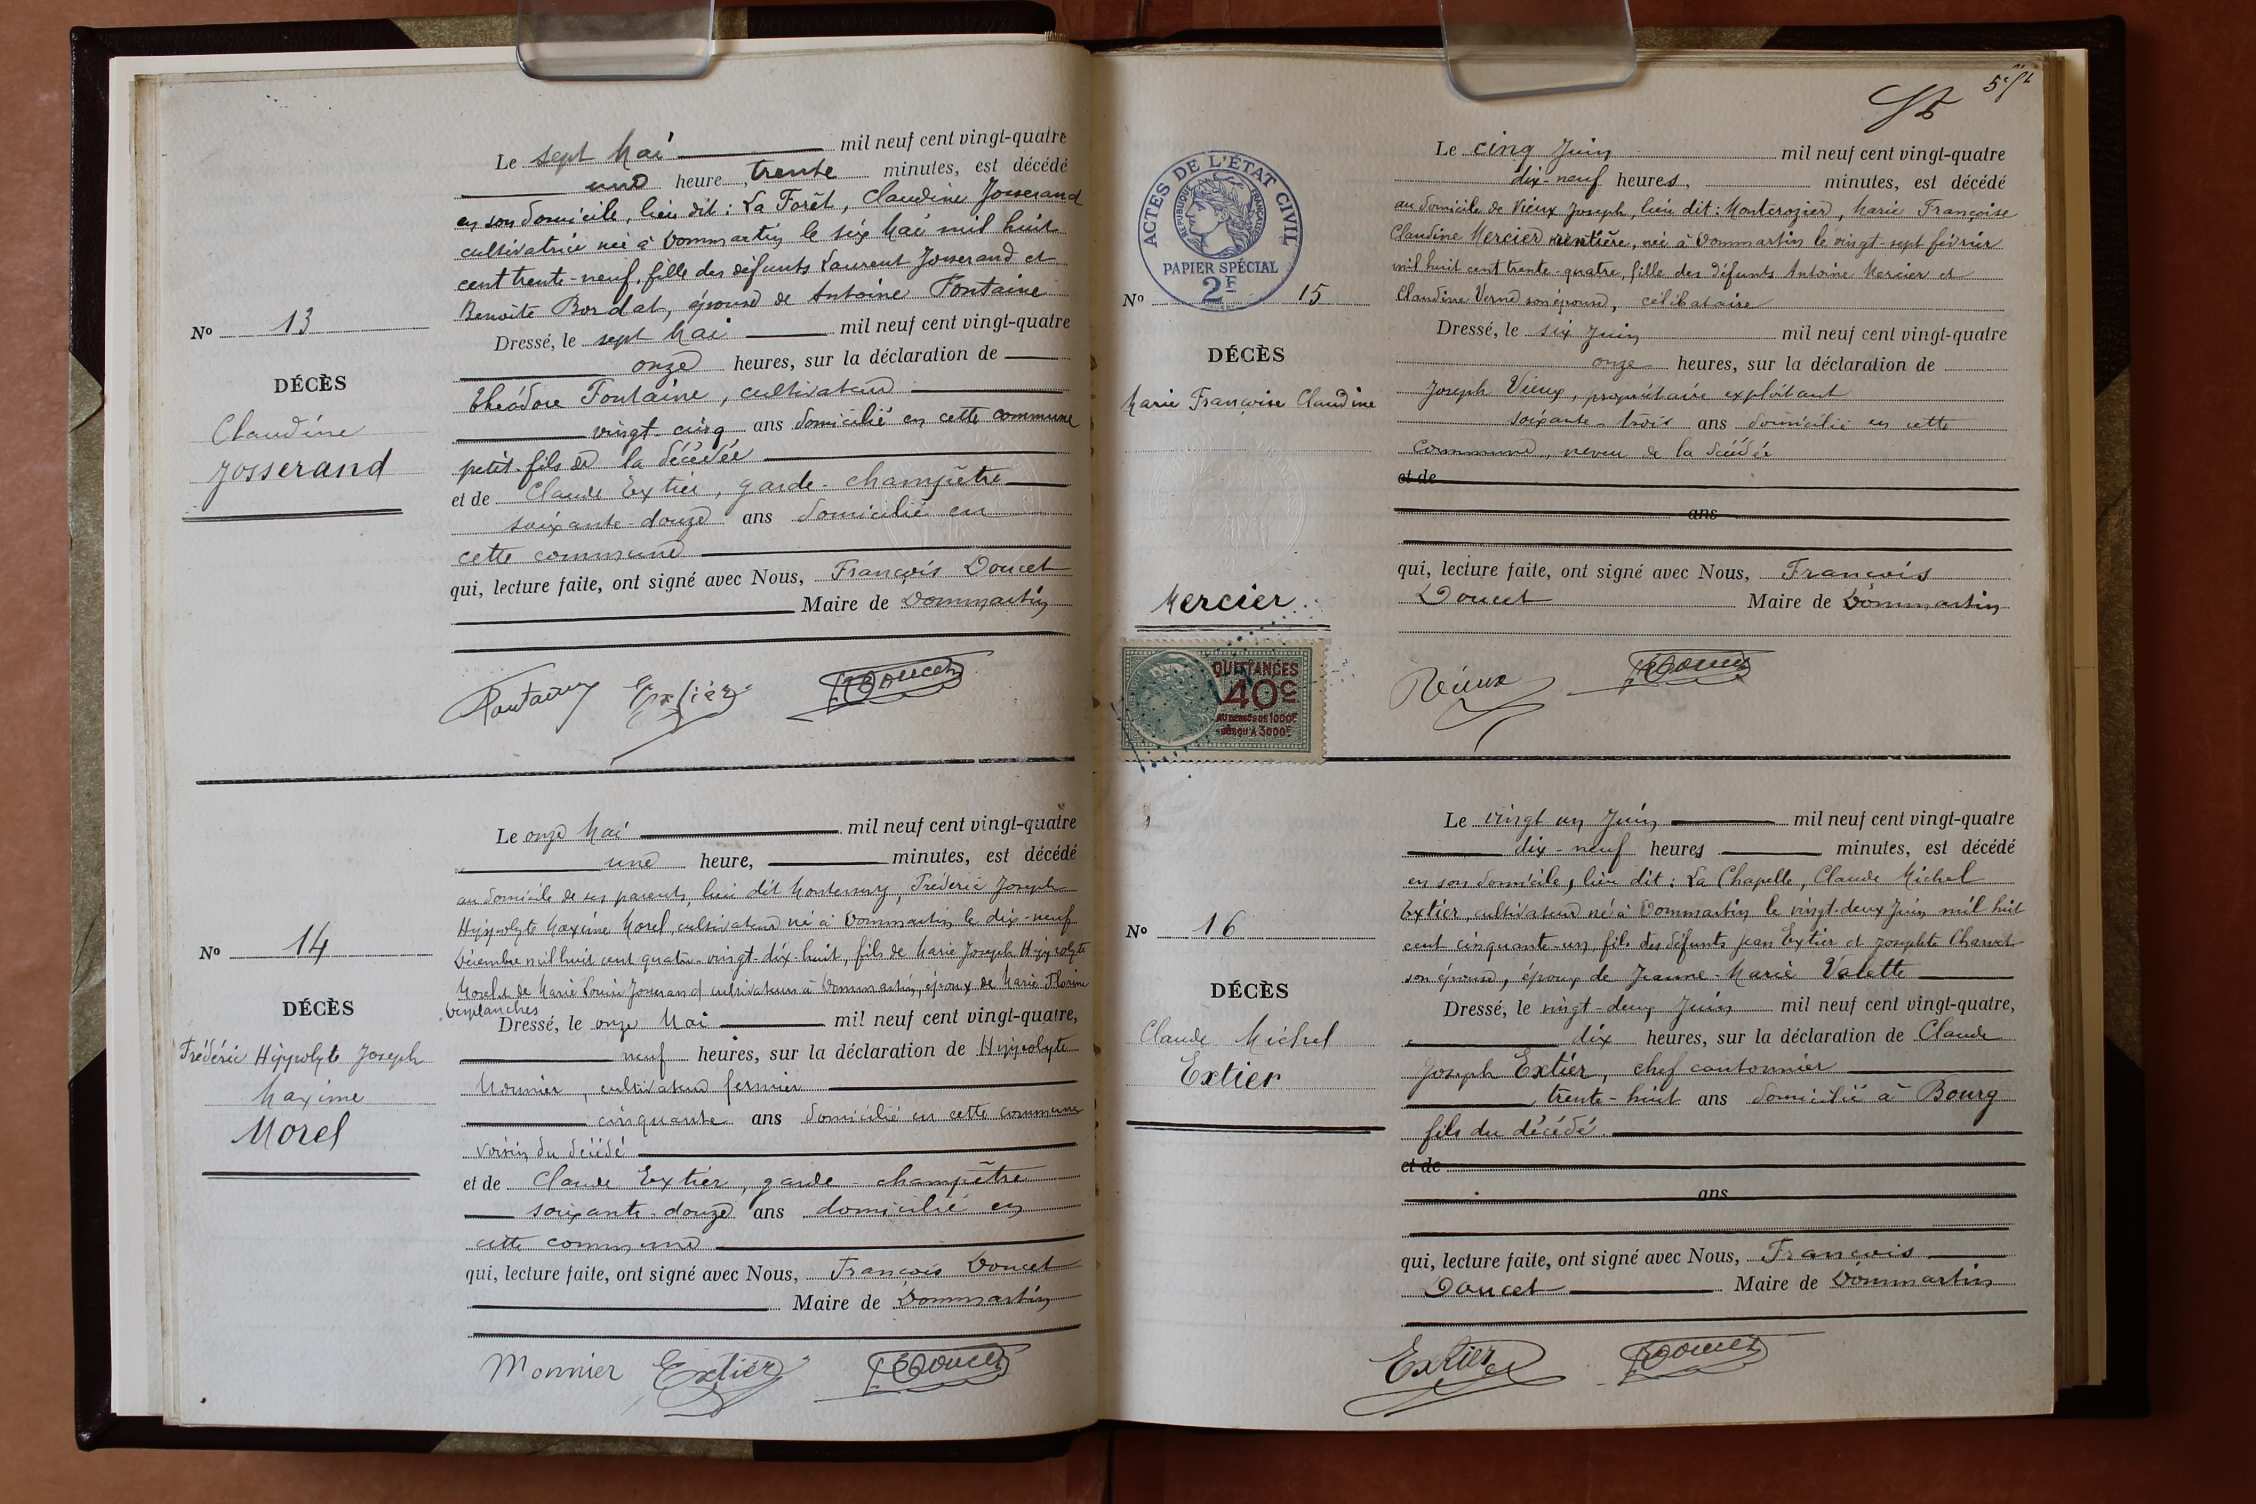 Le sept Mai mil neuf cent vingt-quatre
une heure, trente minutes, est décédé
en son domicile, lieu dit : La Forêt, Claudine Josserand
cultivatrice née à Dommartin le six Mai mil huit
cent trente-neuf, fille des défunts Laurent Josserand et
Benoite Bordat, épouse de Antoine Fontaine
Nº 13
DÉCÈS
Claudine
Josserand
Dressé, le sept Mai mil neuf cent vingt-quatre
onze heures, sur la déclaration de
Théodore Fontaine, cultivateur
vingt-cinq ans domicilié en cette commune
petit-fils de la décédée
et de Claude Extier, garde-champêtre
soixante-douze ans domicilié en
cette commune
qui, lecture faite, ont signé avec Nous, François Doucet
Maire de Dommartin
Fontaine Extier Doucet
Le onze Mai mil neuf cent vingt-quatre
une heure, minutes, est décédé
au domicile de ses parents, lieu dit Montenuy, Fréderic Joseph
Hippolyte Maxime Morel, cultivateur né à Dommartin le dix-neuf
Décembre mil huit cent quatre-vingt-dix-huit, fils de Marie Joseph Hippolyte
Morel et de Marie Louise Josserand cultivateurs à Dommartin, époux de Marie Florine
Nº 14
DÉCÈS
Frédéric Hippolyte Joseph
Maxime
Morel
Dressé, le onze Mai mil neuf cent vingt-quatre,
neuf heures, sur la déclaration de Hippolyte
Monnier, cultivateur fermier
cinquante ans domicilié en cette commune
voisin du décédé
et de Claude Extier, garde-champêtre
soixante-douze ans domicilié en
cette commune
qui, lecture faite, ont signé avec Nous, François Doucet
Maire de Dommartin
Monnier Extier Doucet
ACTES DE L'ÉTAT CIVIL
RÉPUBLIQUE FRANÇAISE
PAPIER SPÉCIAL
2F
Nº 15
DÉCÈS
Marie Françoise Claudine
Mercier
QUITTANCES
40c
AU DESSUS DE 1000F
JUSQU'À 3000F
Le cinq Juin mil neuf cent vingt-quatre
dix-neuf heures, minutes, est décédé
au domicile de Vieux Joseph, lieu dit : Monterozier, Marie Françoise
Claudine Mercier rentière, née à Dommartin le vingt-sept février
mil huit cent trente-quatre, fille des défunts Antoine Mercier et
Claudine Verne son épouse, célibataire
Dressé, le six Juin mil neuf cent vingt-quatre
onze heures, sur la déclaration de
Joseph Vieux, propriétaire exploitant
soixante-trois ans domicilié en cette
commune, neveu de la décédée
et de
ans
qui, lecture faite, ont signé avec Nous, François
Doucet Maire de Dommartin
Vieux Doucet
Le vingt un Juin mil neuf cent vingt-quatre
dix-neuf heures minutes, est décédé
en son domicile, lieu dit : La Chapelle, Claude Michel
Extier, cultivateur né à Dommartin le vingt-deux Juin mil huit
cent cinquante-un, fils des défunts Jean Extier et Josephte Charvet
son épouse, époux de Jeanne-Marie Valette
Nº 16
DÉCÈS
Claude Michel
Extier
Dressé, le vingt-deux Juin mil neuf cent vingt-quatre,
dix heures, sur la déclaration de Claude
Joseph Extier, chef cantonnier
trente-huit ans domicilié à Bourg
fils du décédé
et de
ans
qui, lecture faite, ont signé avec Nous, François
Doucet Maire de Dommartin
Extier Doucet